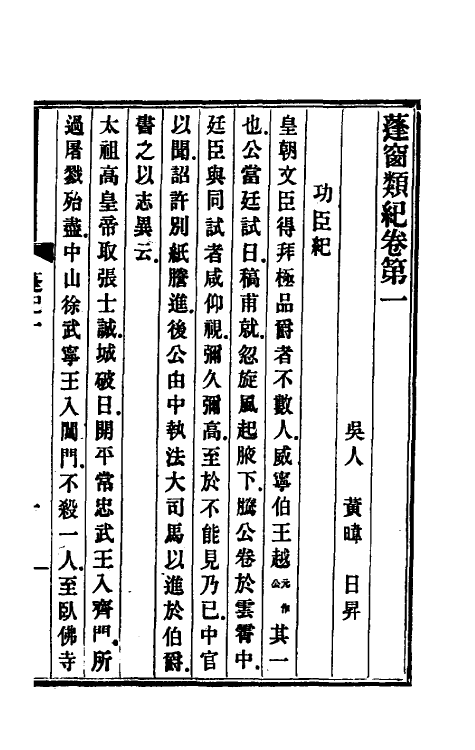 蓬窗類紀卷第一
吳人 黃暐 日昇
功臣紀
皇朝文臣得拜極品爵者不數人威寧伯王越公元作其一
也公當廷試日稿甫就忽旋風起腋下騰公卷於雲霄中
廷臣與同試者咸仰視彌久彌高至於不能見乃已中官
以聞詔許別紙謄進後公由中執法大司馬以進於伯爵
書之以志異云
太祖高皇帝取張士誠城破日開平常忠武王入齊門所
過屠戮殆盡中山徐武寧王入閶門不殺一人至臥佛寺
蓬紀一
一